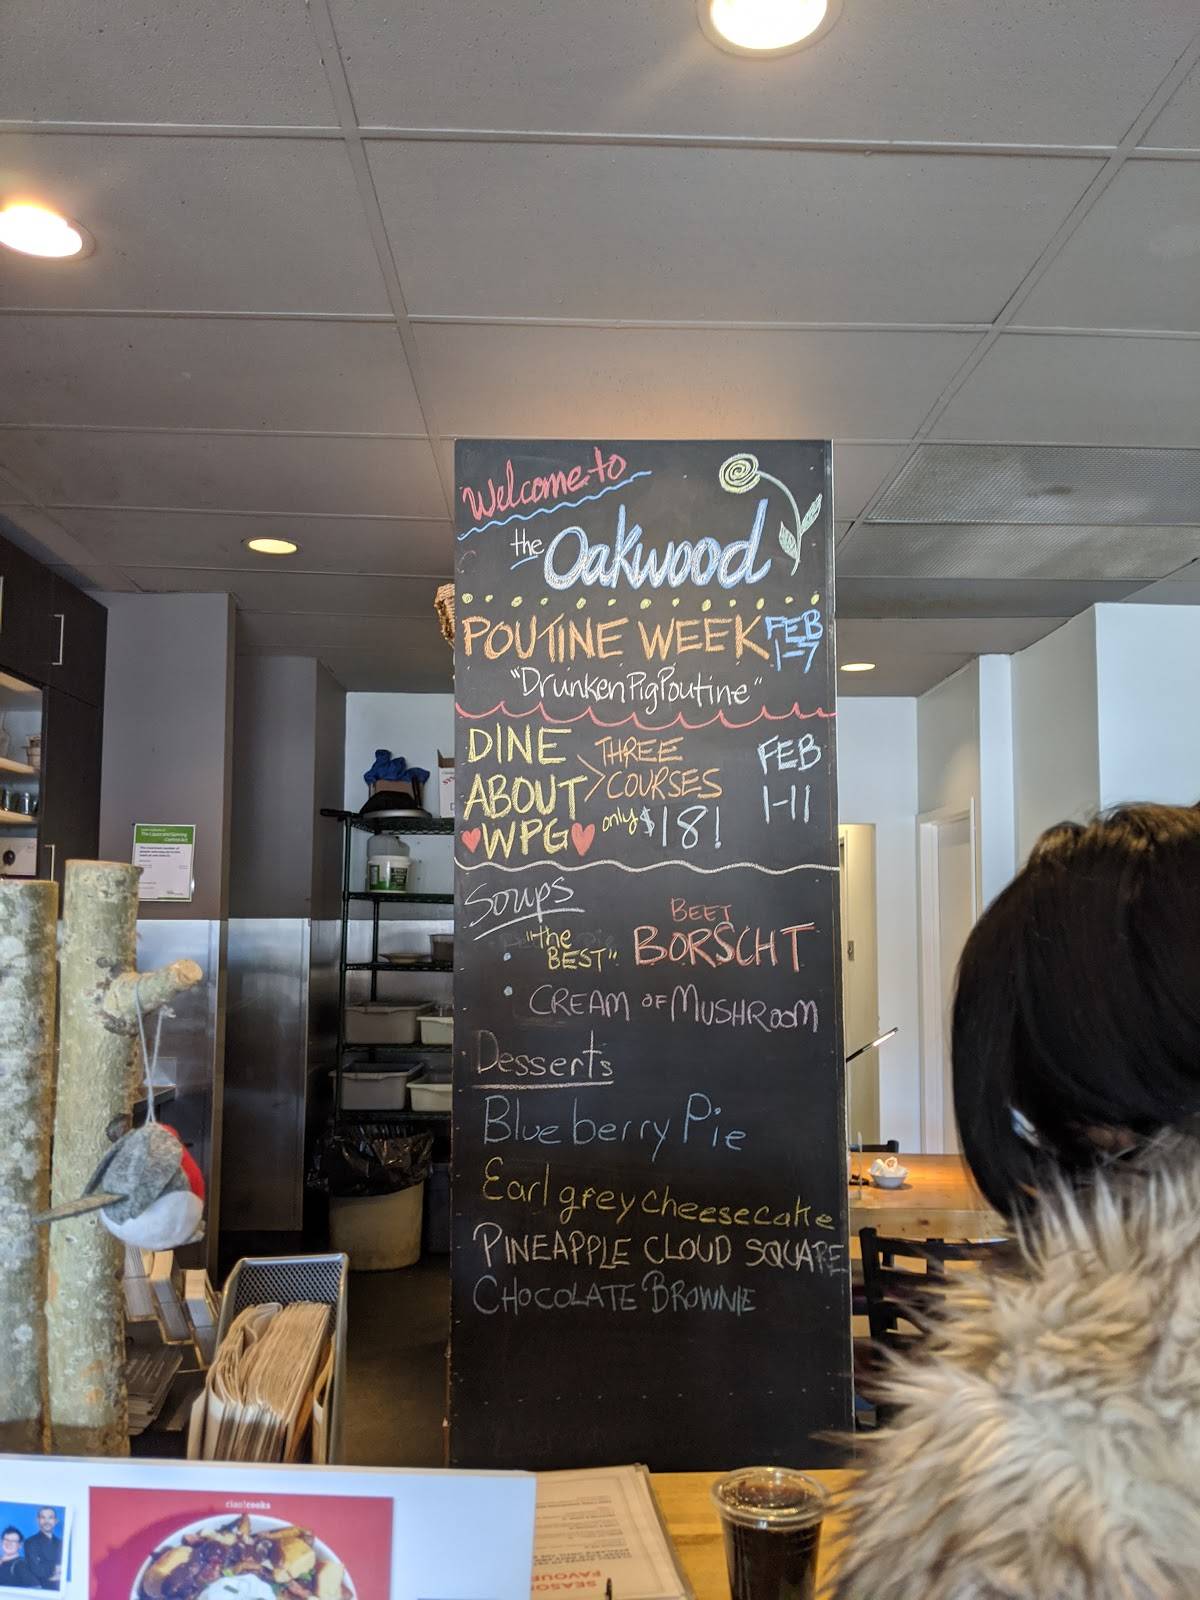 Welcome to
the Oakwood
POUTINE WEEK FEB 1-7
"Drunken Pig Poutine"
DINE ABOUT ♥WPG♥
THREE COURSES
only $18!
FEB 1-11
Soups
"the BEST" BEET BORSCHT
• CREAM OF MUSHROOM
Desserts
Blueberry Pie
Earl grey cheesecake
PINEAPPLE CLOUD SQUARE
CHOCOLATE BROWNIE
The Liquor and Gaming
Control Act
ciao!cooks